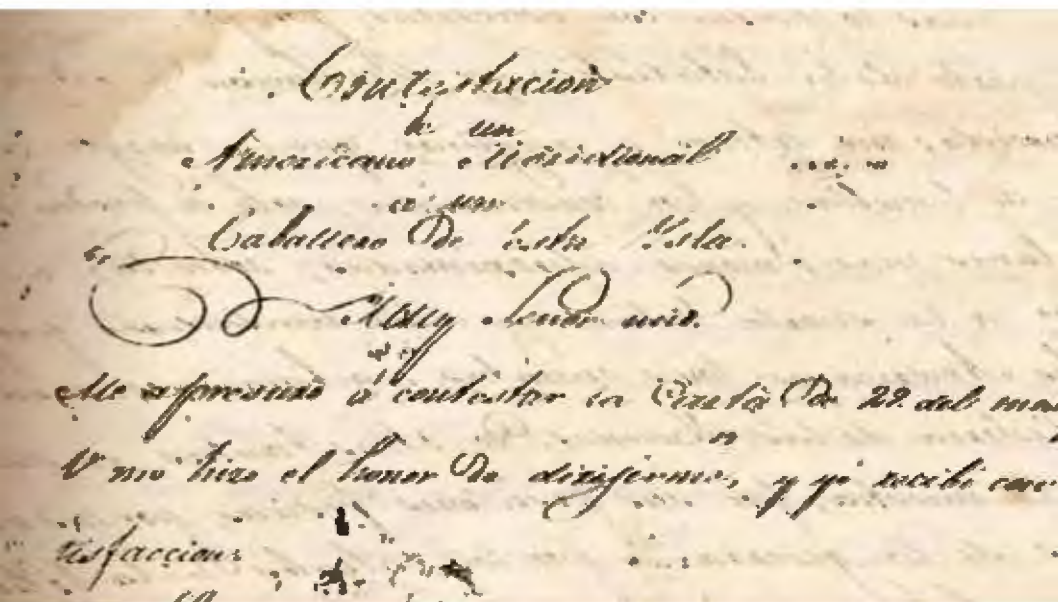 Contestacion
de un
Americano Meridional
a un
Caballero De esta Ysla.
Muy Señor mio.
Me apresuro á contestar la Carta De 29. del
V me hizo el honor De dirijirme, y yó recibi con
tisfaccion.